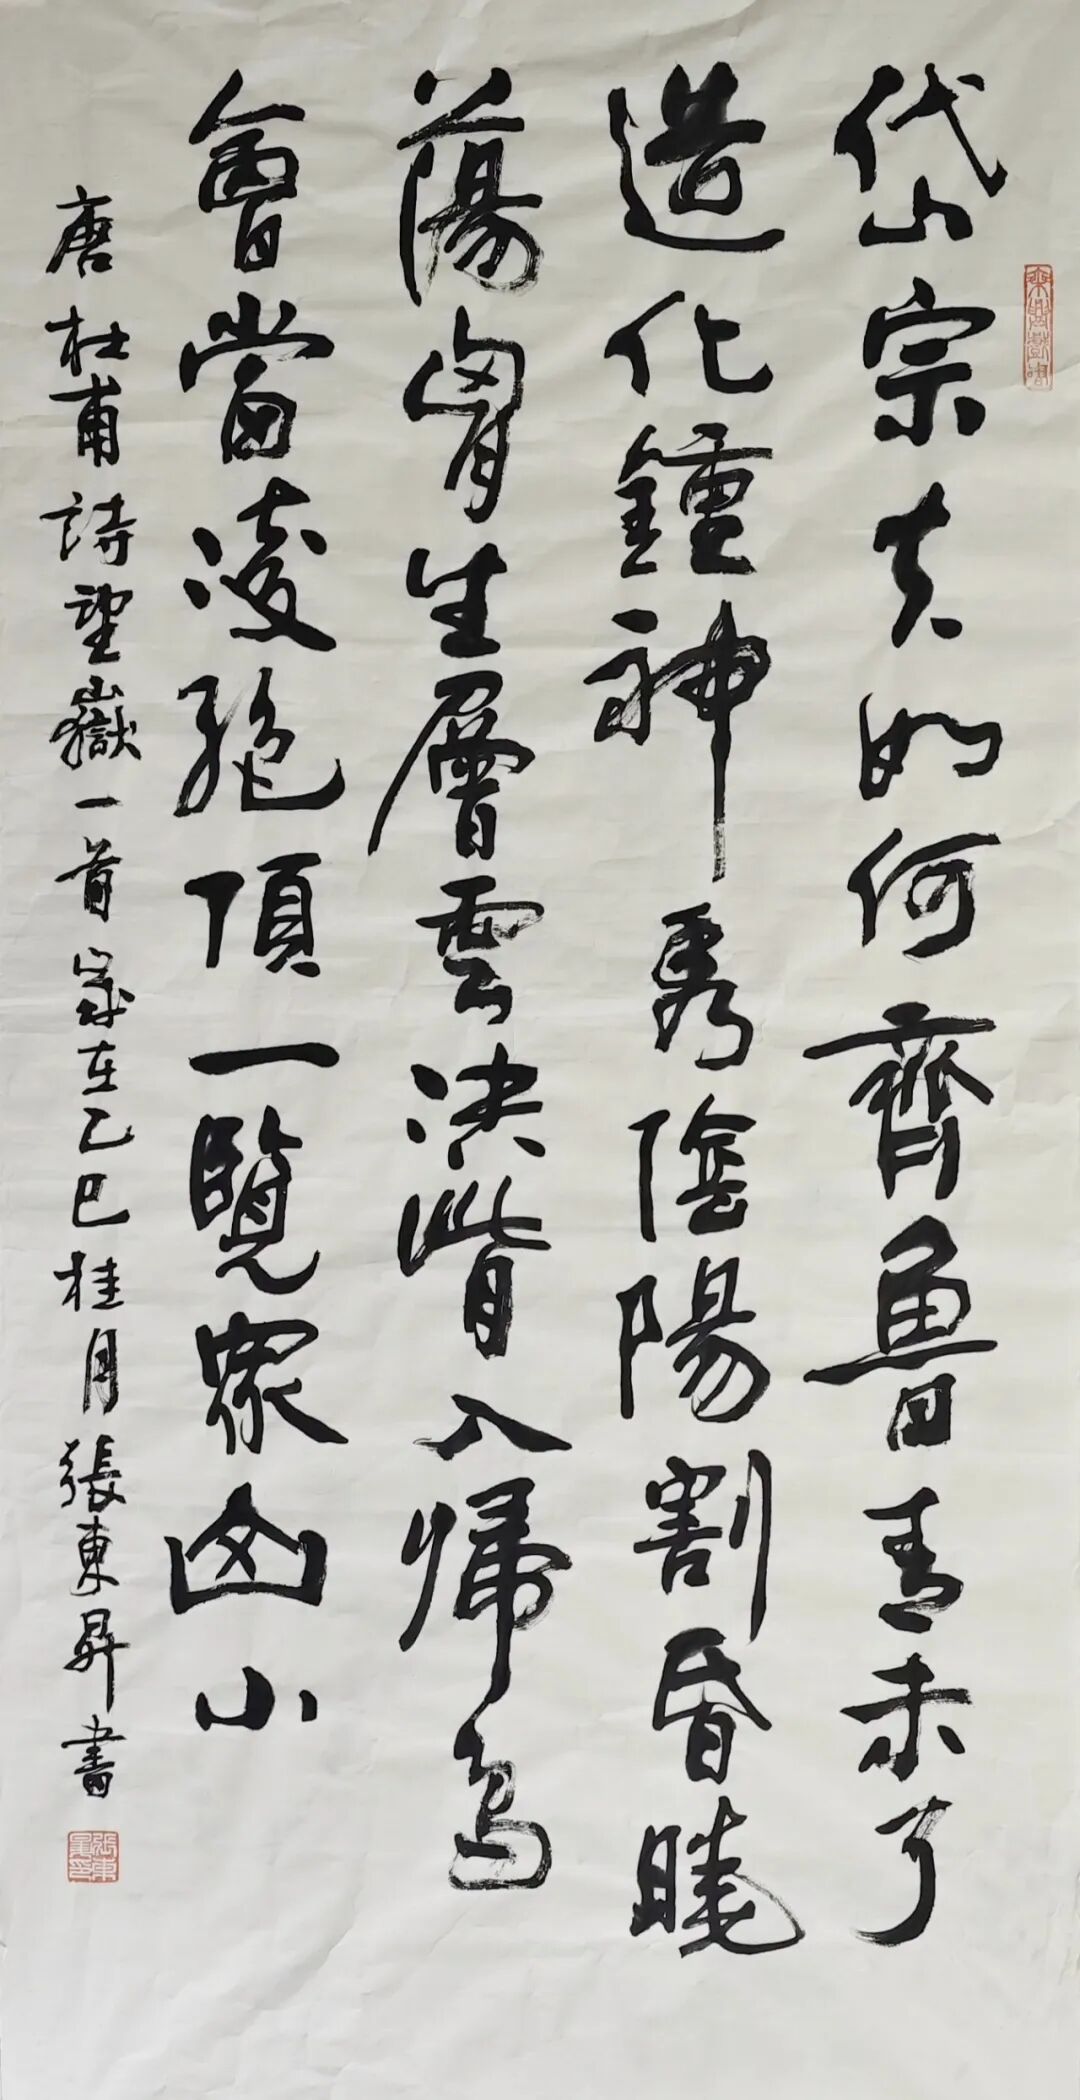 岱宗夫如何齊魯青未了
造化鍾神秀陰陽割昏曉
蕩胷生層雲決眥入歸鳥
會當凌絕頂一覽衆山小
唐杜甫詩望嶽一首歲在乙巳桂月張東昇書
張東昇印